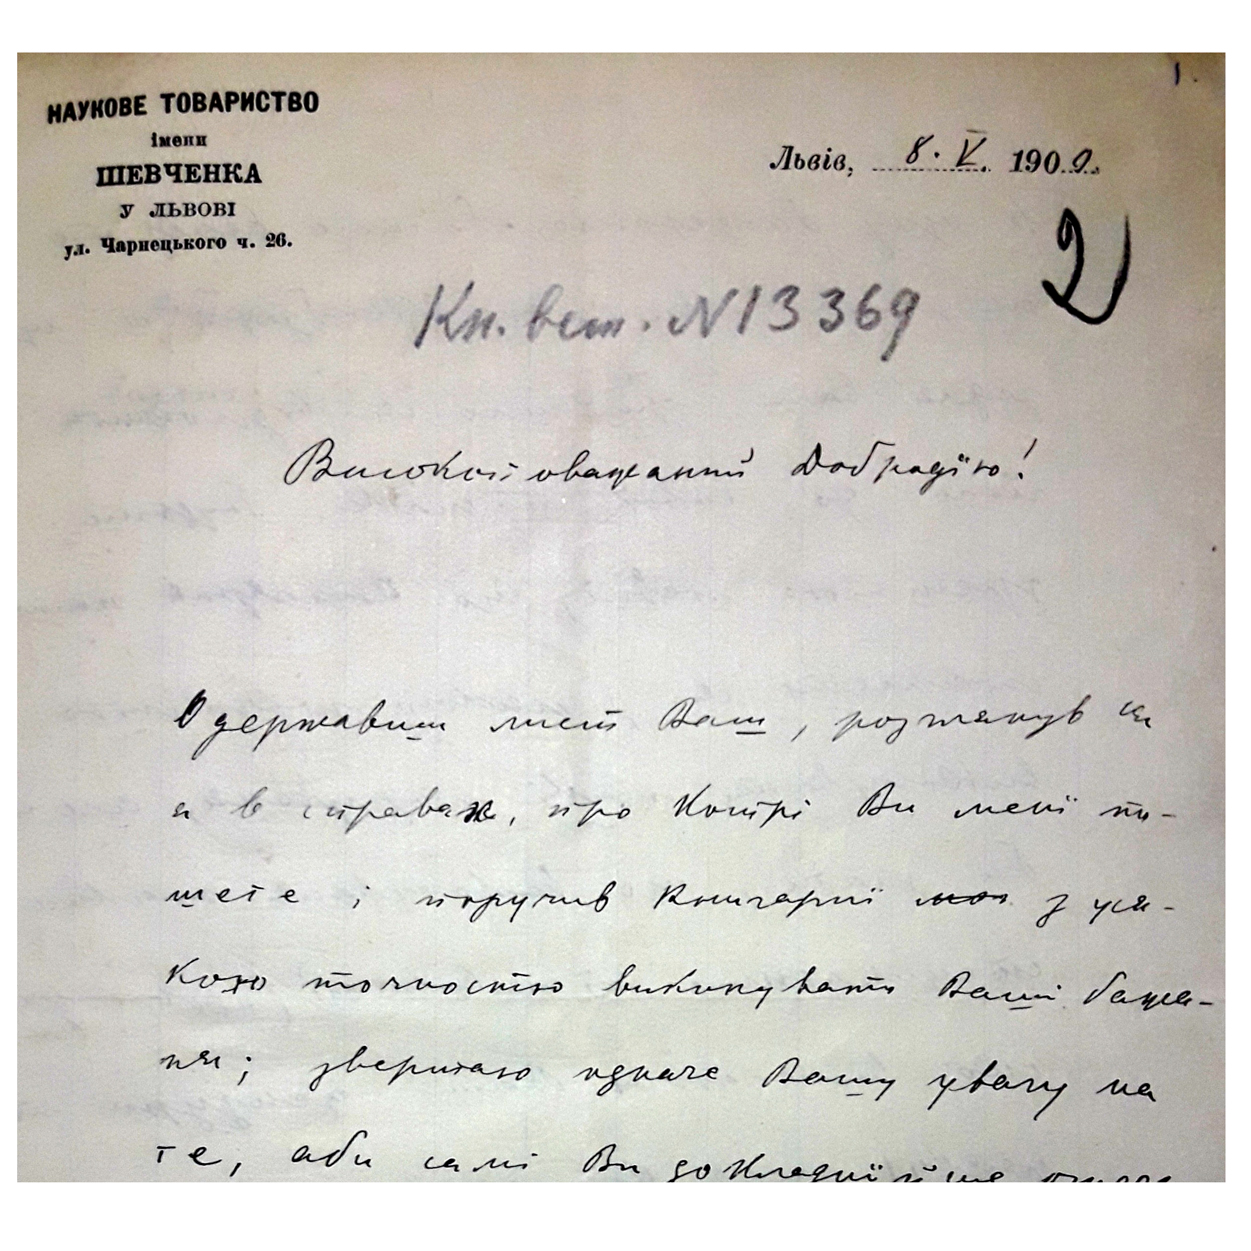 1.
НАУКОВЕ ТОВАРИСТВО
імени
ШЕВЧЕНКА
У ЛЬВОВІ
ул. Чарнецького ч. 26.
Львів, 8. V. 1900.
2
Кн. вст. N 13369
Високоповажаний Добродїю!
Одержавши лист Ваш, розглянув ся
я в справах, про котрі Ви менї пи-
шете і поручив Книгарнї з уся-
кою точностю виконувати Ваші бажа-
ня; звертаю одначе Вашу увагу на
те, аби самі Ви докладнїйше